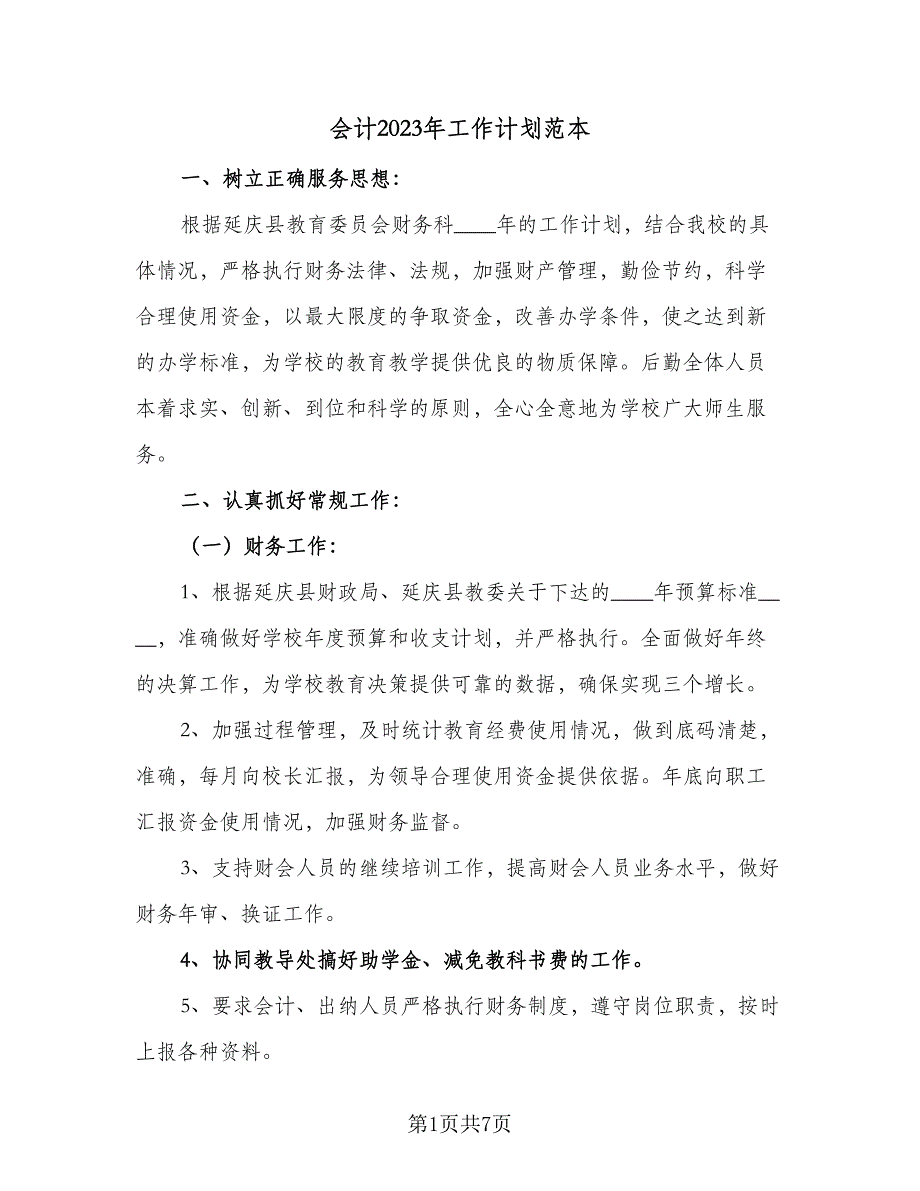 会计2023年工作计划范本
一、树立正确服务思想：
根据延庆县教育委员会财务科____年的工作计划，结合我校的具
体情况，严格执行财务法律、法规，加强财产管理，勤俭节约，科学
合理使用资金，以最大限度的争取资金，改善办学条件，使之达到新
的办学标准，为学校的教育教学提供优良的物质保障。后勤全体人员
本着求实、创新、到位和科学的原则，全心全意地为学校广大师生服
务。
二、认真抓好常规工作：
（一）财务工作：
1、根据延庆县财政局、延庆县教委关于下达的____年预算标准__
__，准确做好学校年度预算和收支计划，并严格执行。全面做好年终
的决算工作，为学校教育决策提供可靠的数据，确保实现三个增长。
2、加强过程管理，及时统计教育经费使用情况，做到底码清楚，
准确，每月向校长汇报，为领导合理使用资金提供依据。年底向职工
汇报资金使用情况，加强财务监督。
3、支持财会人员的继续培训工作，提高财会人员业务水平，做好
财务年审、换证工作。
4、协同教导处搞好助学金、减免教科书费的工作。
5、要求会计、出纳人员严格执行财务制度，遵守岗位职责，按时
上报各种资料。
第1页共7页